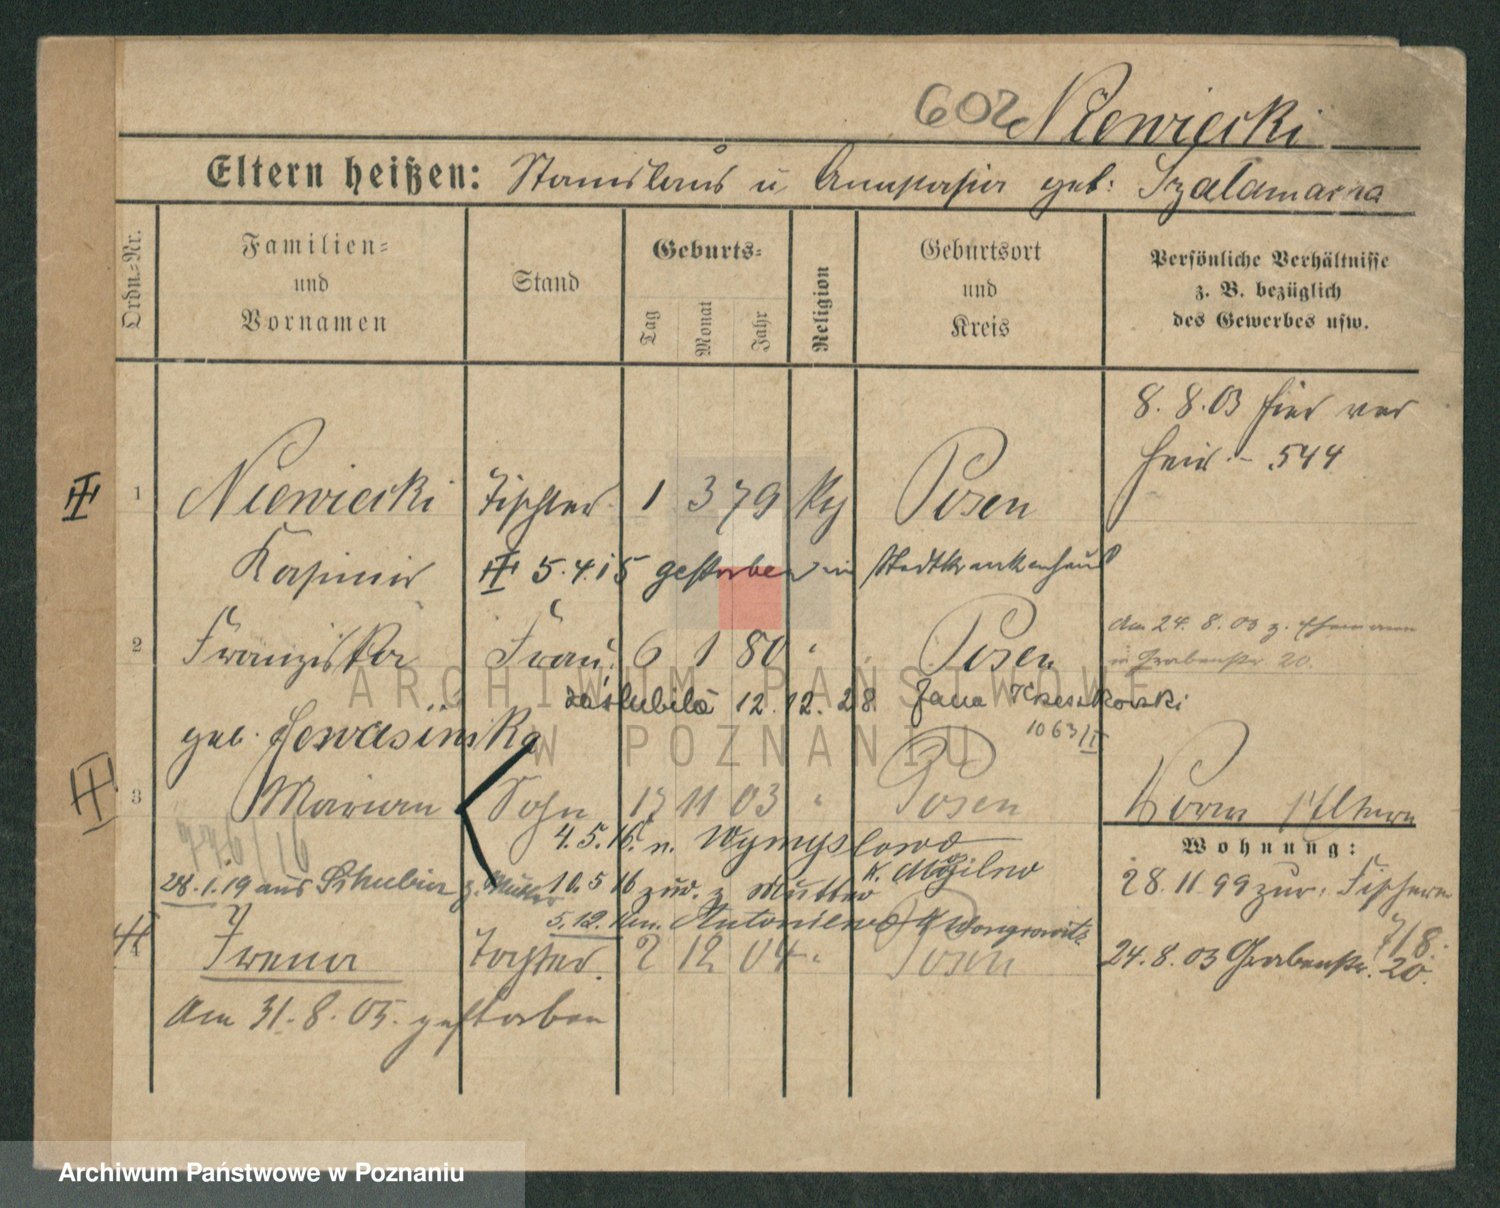 602 Niewiecki
Eltern heißen: Stanislaus u Anastasia geb: Szalamacna
Ordn.-Nr.
Familien- und Vornamen
Stand
Geburts-
Tag
Monat
Jahr
Religion
Geburtsort und Kreis
Persönliche Verhältnisse
z. B. bezüglich
des Gewerbes usw.
8. 8. 03 hier ver
heir. - 544
1 Niewiecki Tischler 1 3 79 Posen
Kasimir 5.4.15 gestorben im Stadtkrankenhaus
2 Franziska Frau 6 1 80 " Posen
Am 24. 8. 03 z. Ehemann
in Grabenstr 20.
zaślubiła 12.12.28 Jana
1063/II
geb.
3 Marian Sohn 13 11 03 " Posen
Vorm Eltern
776/16
4.5.16. n. Wymyslowo
K. Mogilno
Wohnung:
28.1.19 aus Schubin z. Mutter 10.5 16 zur. z Mutter
28. 11 99 zur. Fischerei
7/8.
5.12. n. Antoniewo K Wongrowitz
4 Irena Tochter. 2 12 04 " Posen
24. 8. 03 Grabenstr. 20.
Am 31. 8. 05. gestorben
ARCHIWUM PAŃSTWOWE
W POZNANIU
Archiwum Państwowe w Poznaniu